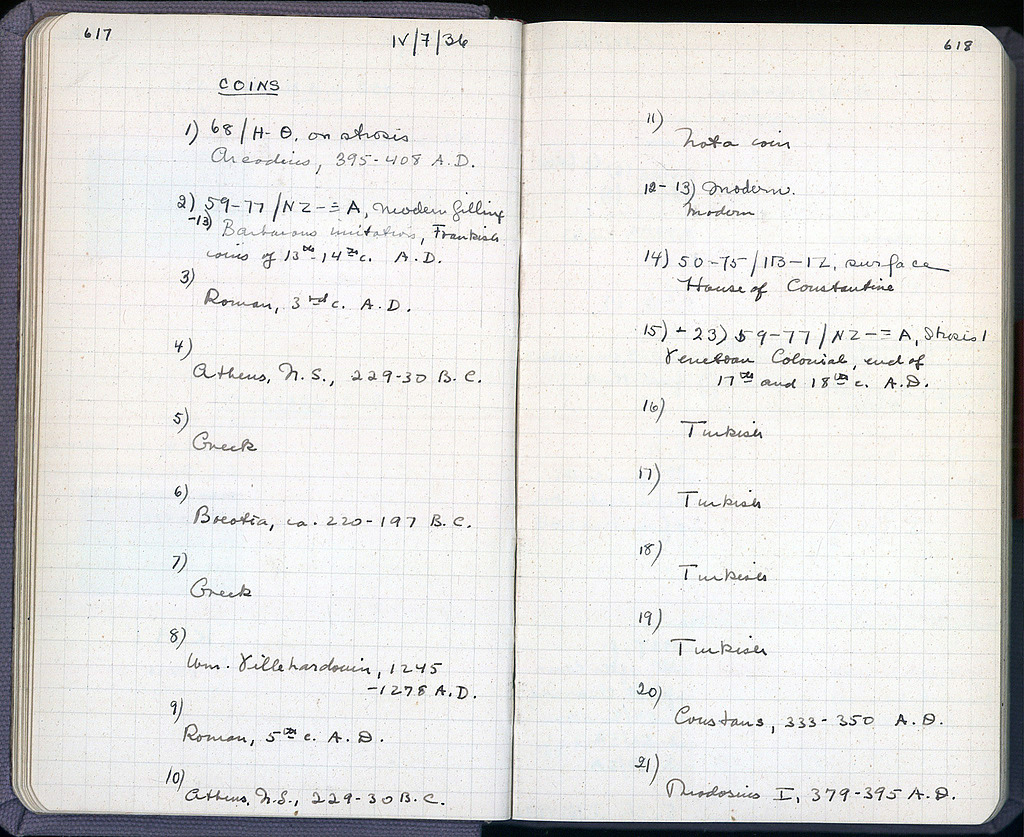 617
IV/7/36
COINS
1) 68/H-Θ, on strosis
Arcadius, 395-408 A.D.
2) 59-77/NZ-≡A, modern filling
-13) Barbarous imitations, Frankish
coins of 13th-14th c. A.D.
3)
Roman, 3rd c. A.D.
4)
Athens, N.S., 229-30 B.C.
5)
Greek
6)
Boeotia, ca. 220-197 B.C.
7)
Greek
8)
Wm. Villehardouin, 1245
-1278 A.D.
9)
Roman, 5th c. A.D.
10)
Athens, N.S., 229-30 B.C.
618
11)
Not a coin
12-13) Modern.
Modern
14) 50-75/ surface
House of Constantine
15) - 23) 59-77/NZ-≡A, Strosis 1
Venetian Colonial, end of
17th and 18th c. A.D.
16)
Turkish
17)
Turkish
18)
Turkish
19)
Turkish
20)
Constans, 333-350 A.D.
21)
Theodosius I, 379-395 A.D.